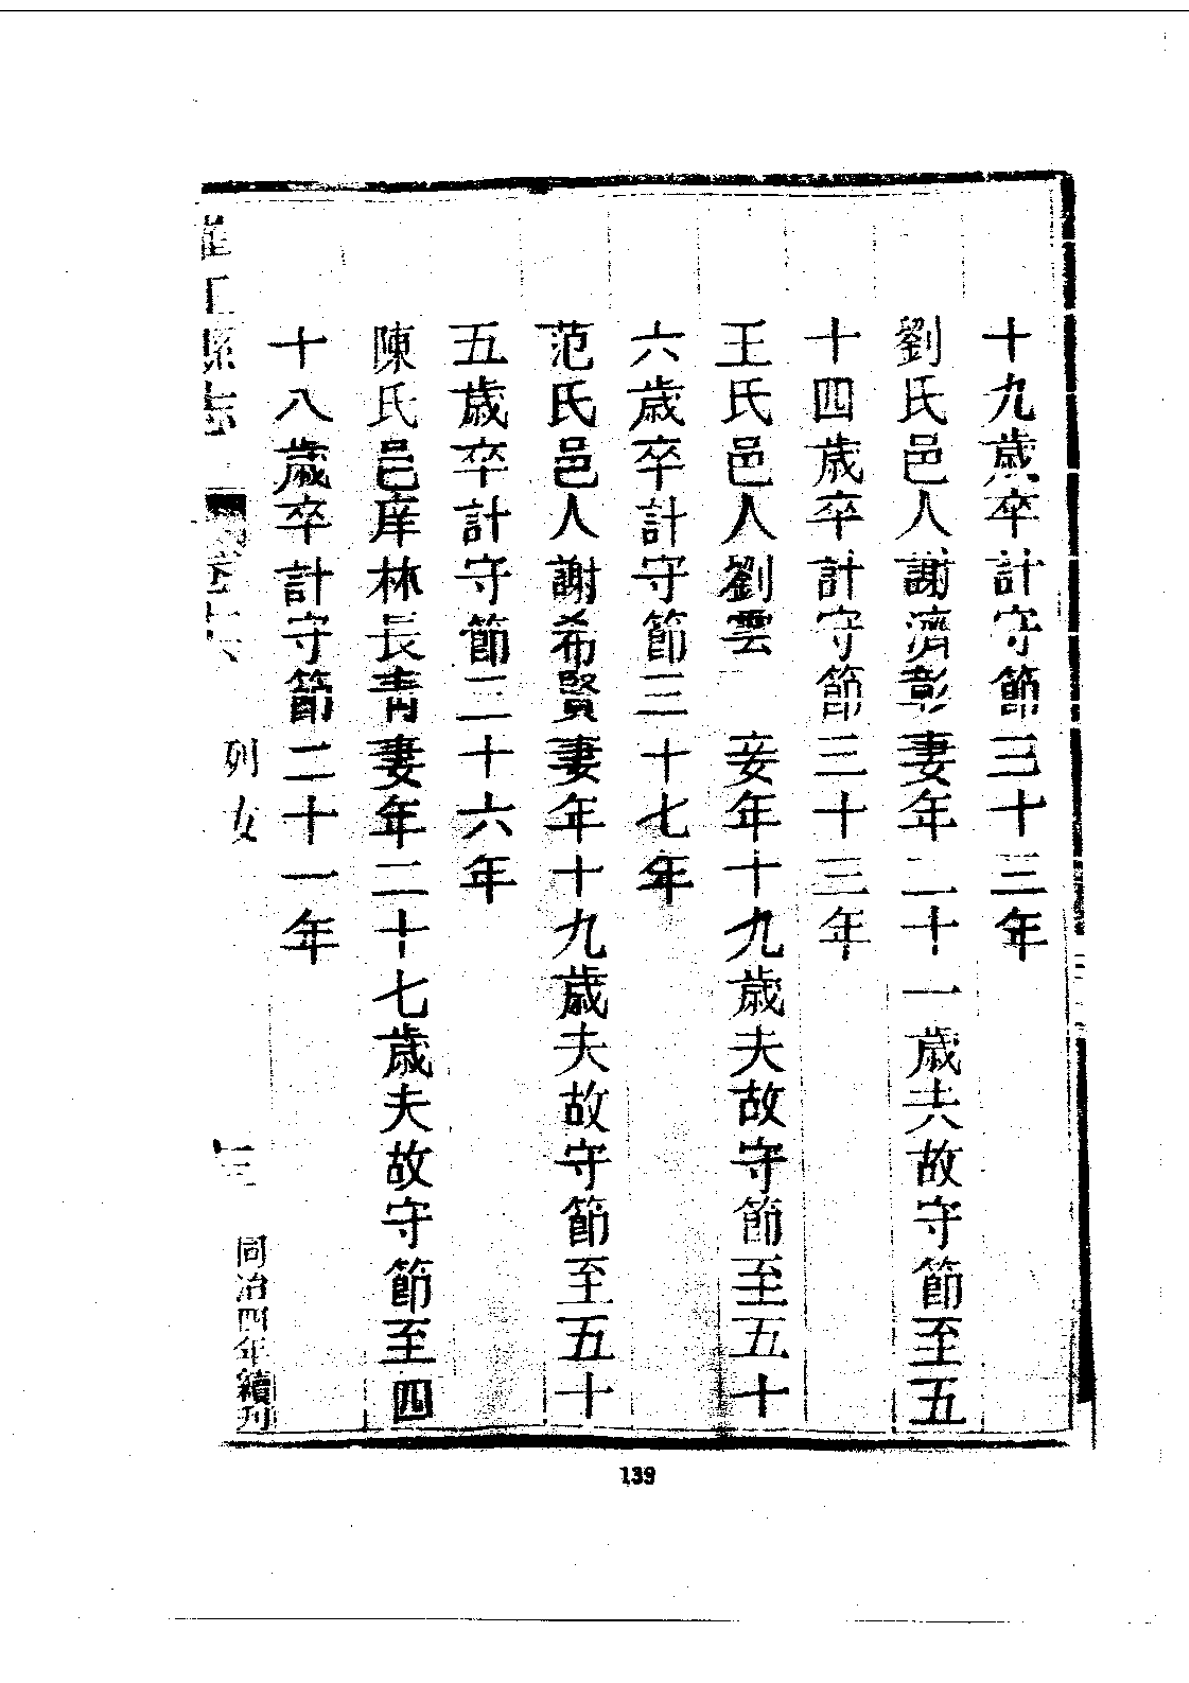 十九歲卒計守節三十三年
劉氏邑人謝濟彰妻年二十一歲夫故守節至五
十四歲卒計守節三十三年
王氏邑人劉雲 妾年十九歲夫故守節至五十
六歲卒計守節三十七年
范氏邑人謝希賢妻年十九歲夫故守節至五十
五歲卒計守節三十六年
陳氏邑庠林長青妻年二十七歲夫故守節至四
十八歲卒計守節二十一年
縣志
列女
同治四年續刊
139